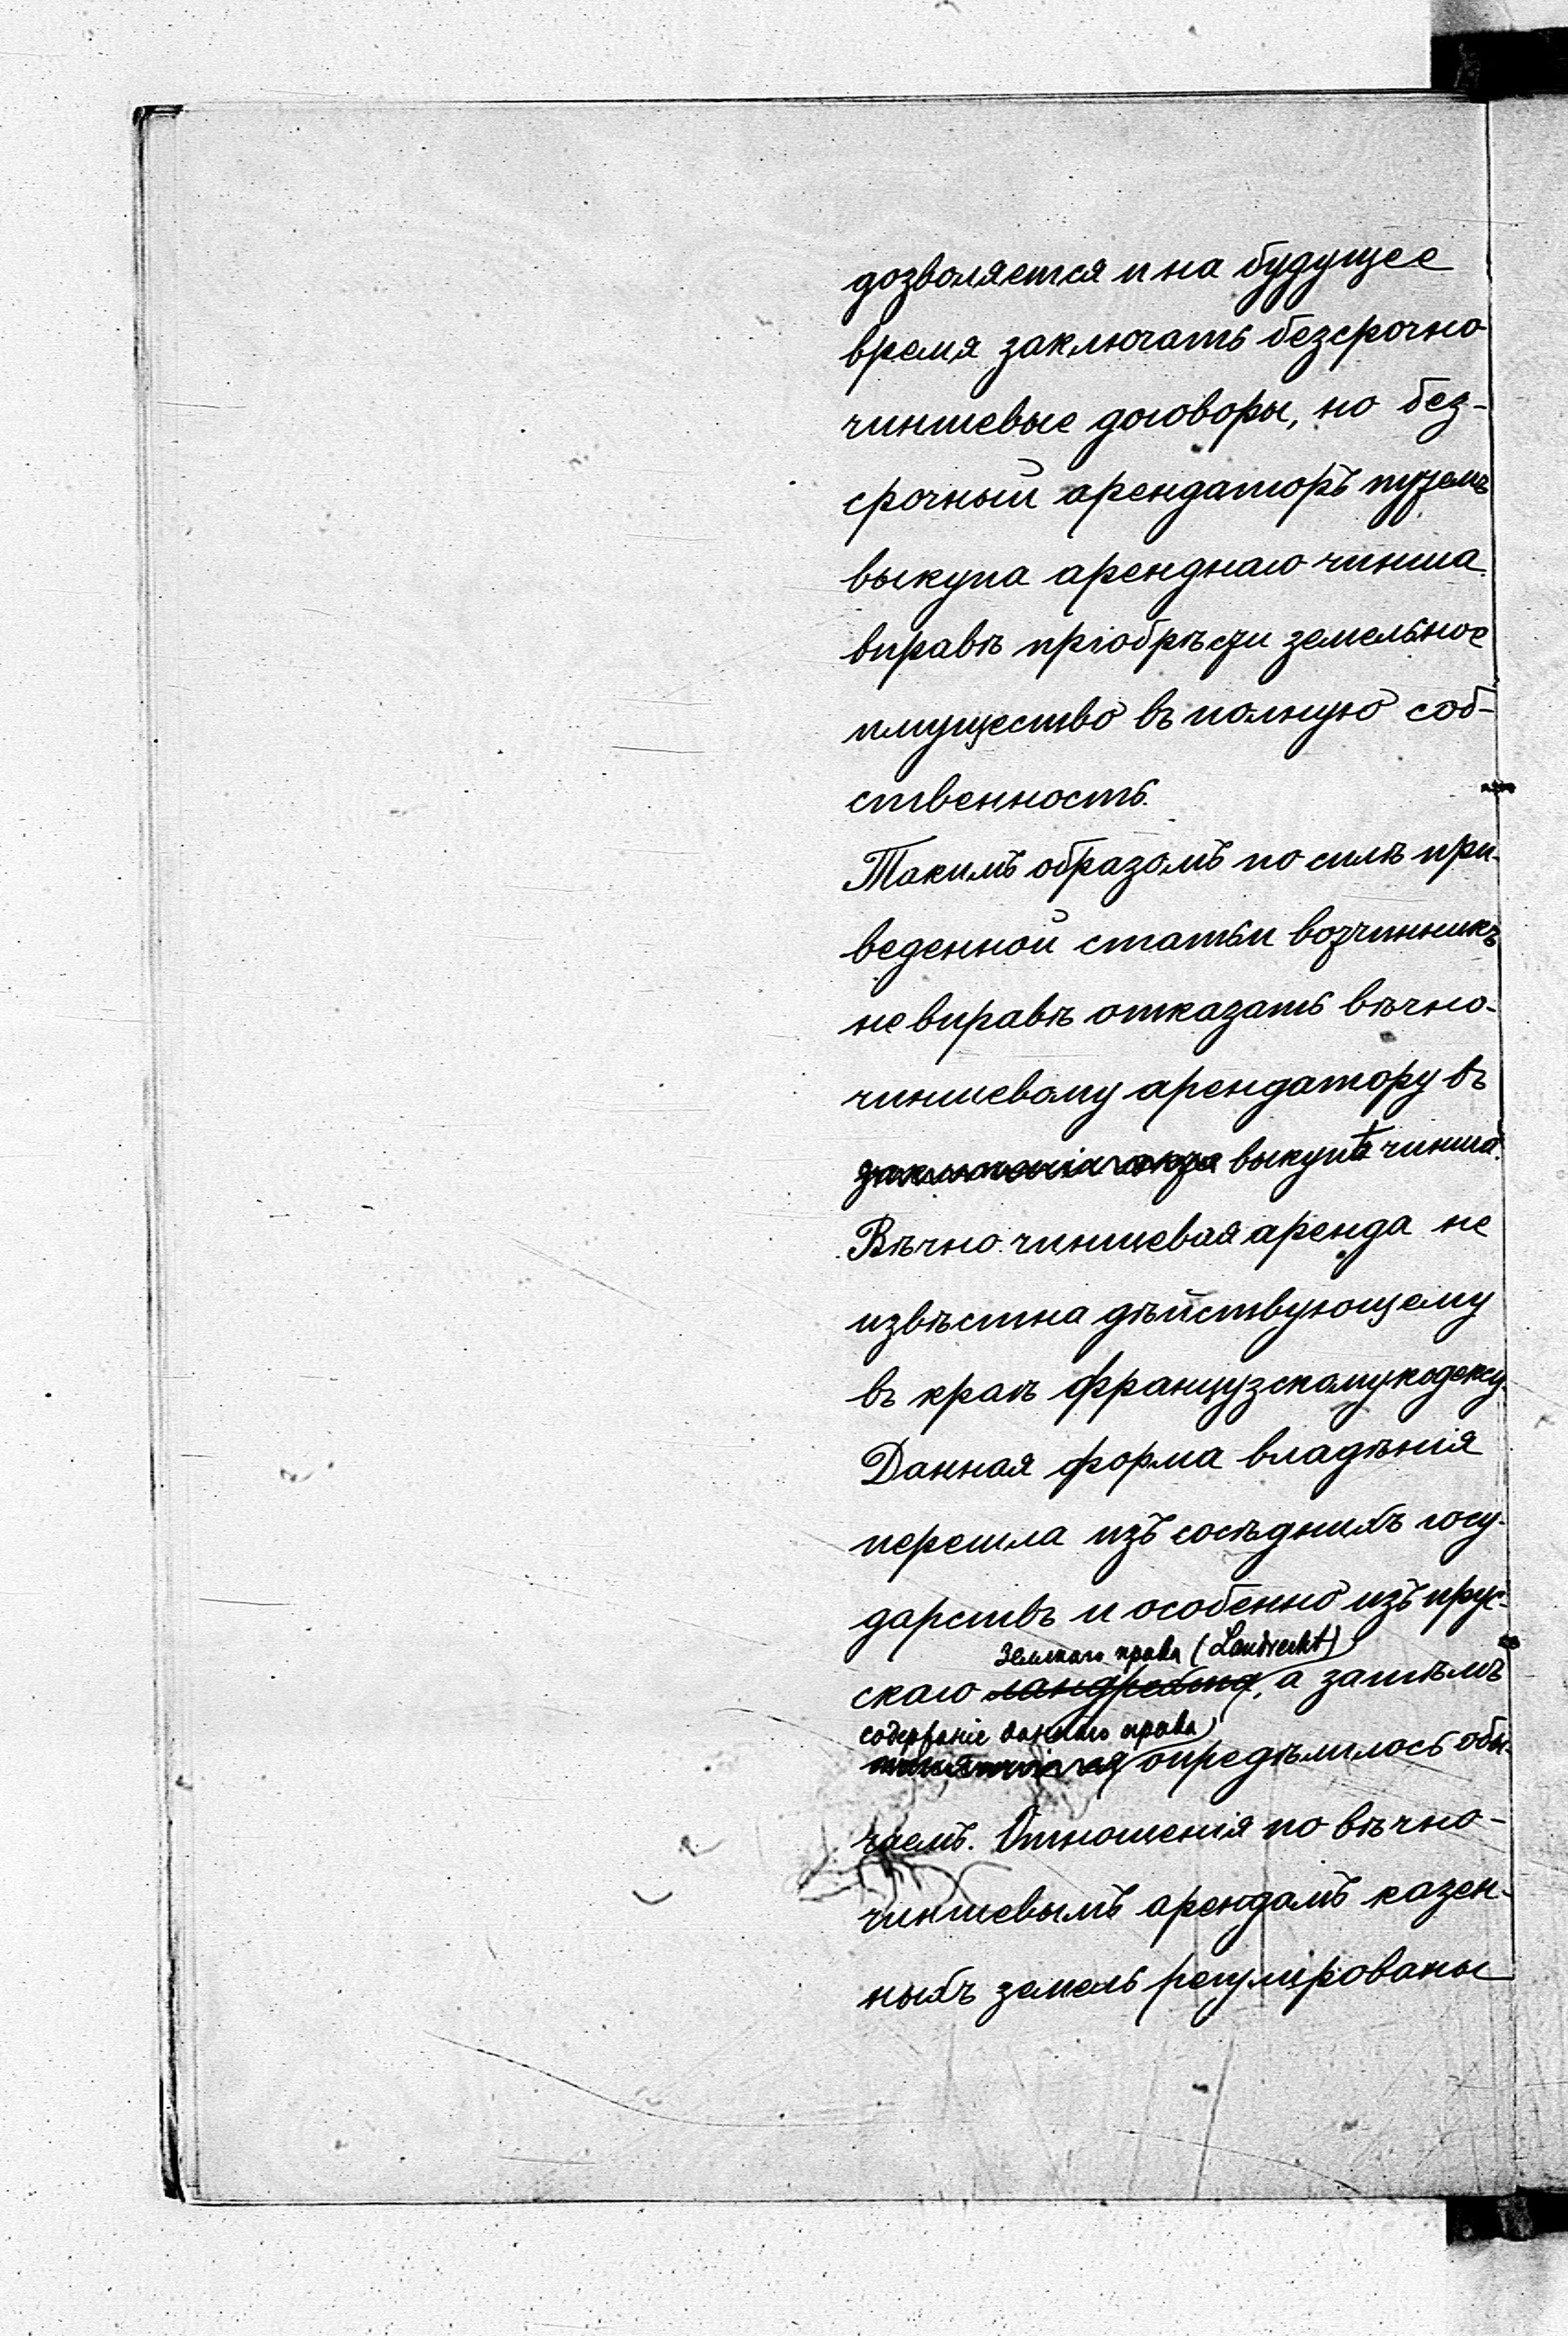 дозволяется и на будущее
время заключать безсрочно
чиншевые договоры, но без-
срочный арендаторъ путемъ
выкупа аренднаго чинша
вправѣ пріобрѣсти земельное
имущество въ полную соб-
ственность.
Такимъ образомъ по силѣ при-
веденной статьи вотчинникъ
не вправѣ отказать вѣчно-
чиншевому арендатору въ
выкупѣ чинша.
Вѣчно-чиншевая аренда не
извѣстна дѣйствующему
въ краѣ французскому кодексу.
Данная форма владѣнія
перешла изъ сосѣднихъ госу-
дарствъ и особенно изъ прус-
Земскаго права (Landrecht)
скаго ландрехта, а затѣмъ
содержаніе даннаго права
опредѣлилось обы-
чаемъ. Отношенія по вѣчно-
чиншевымъ арендамъ казен-
ныхъ земель регулированы